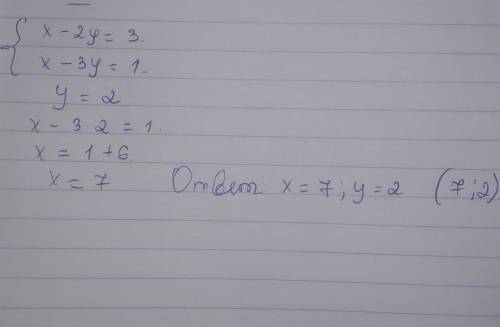 { x - 2y = 3.
x - 3y = 1.
y = 2
x - 3·2 = 1.
x = 1 + 6.
x = 7 Ответ x = 7; y = 2 (7; 2)